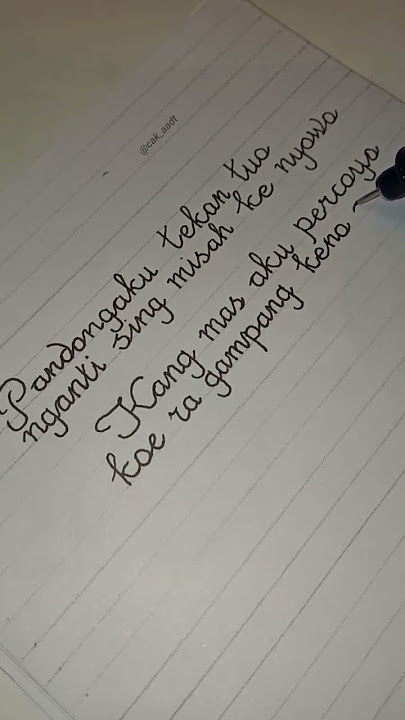 @cak_aadt
Pandongaku tekan tuo
nganti sing misah ke nyowo
Kang mas aku percoyo
koe ra gampang keno